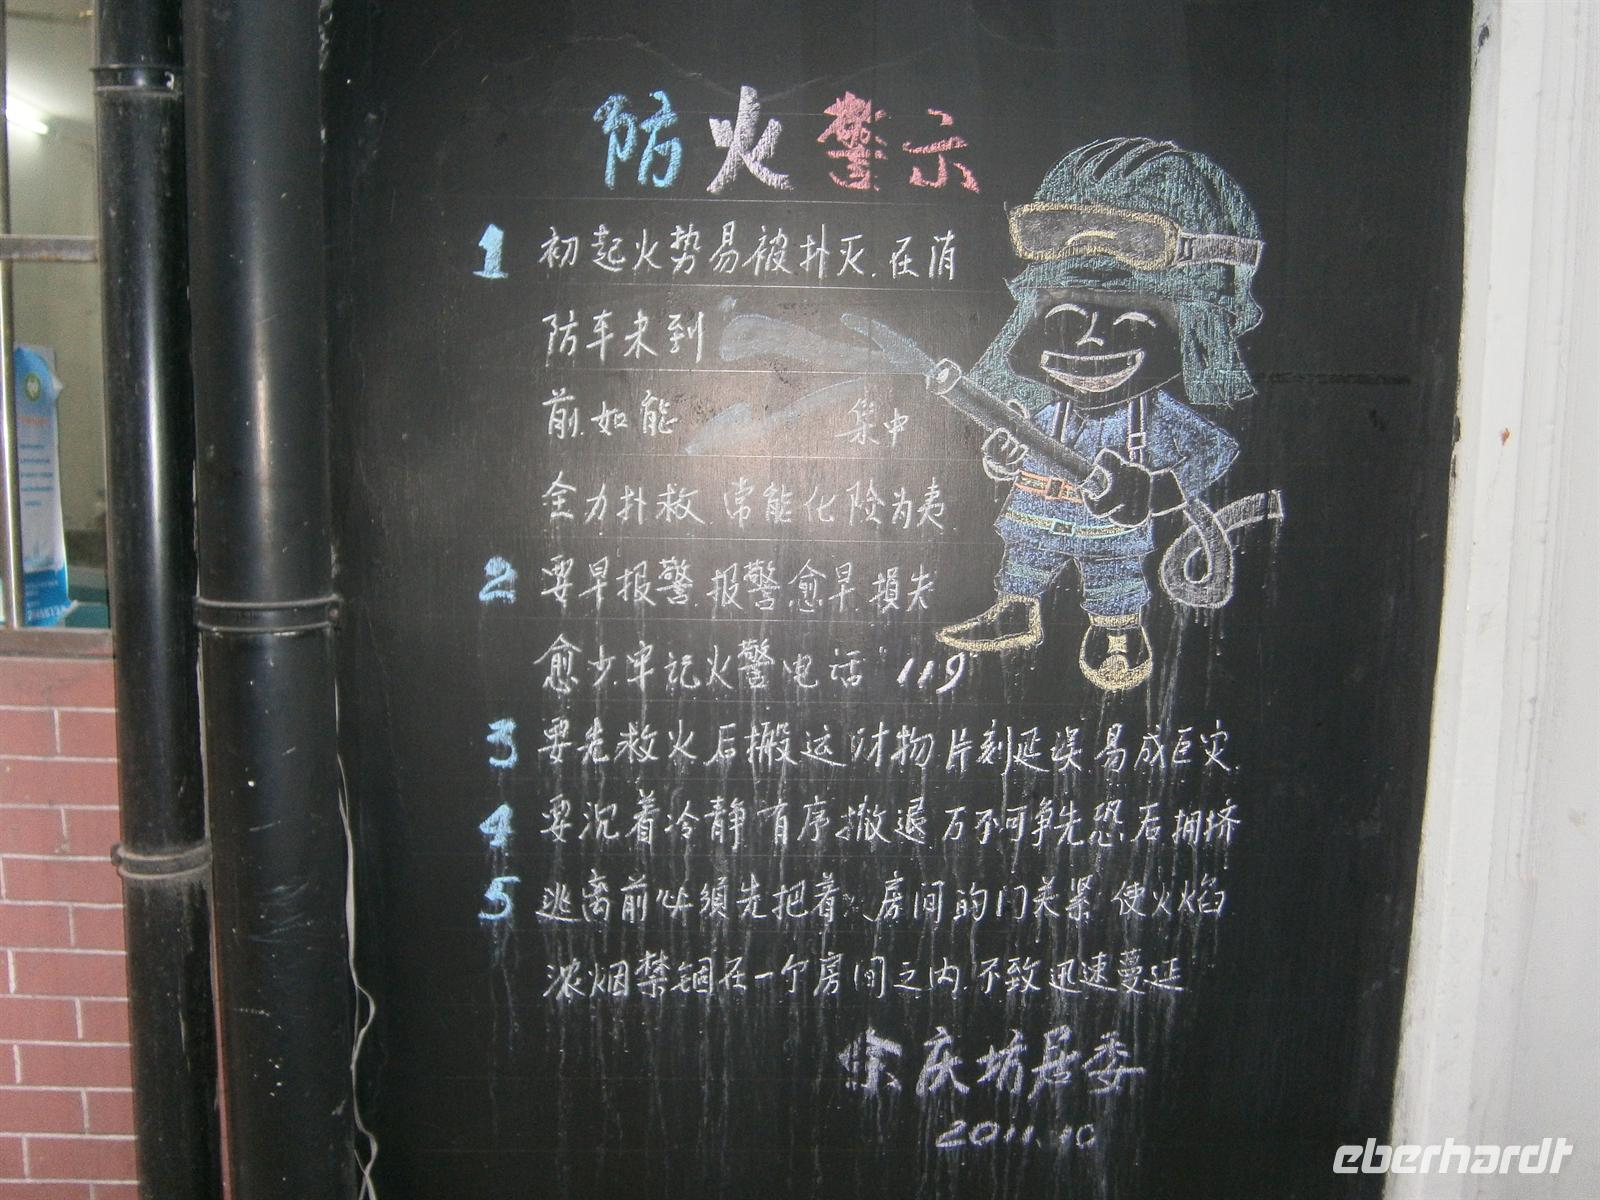 防火警示
1 初起火势易被扑灭.在消
防车未到
前.如能 集中
全力扑救.常能化险为夷
2 要早报警.报警愈早.損失
愈少牢记火警电话"119"
3 要先救火后搬运财物片刻延误.易成巨灾.
4 要沉着冷静有序撤退万不可争先恐后拥挤
5 逃离前必須先把着火房间的门关紧.使火焰
浓烟禁锢在一个房间之内.不致迅速蔓延
余庆坊居委
2011.10
eberhardt